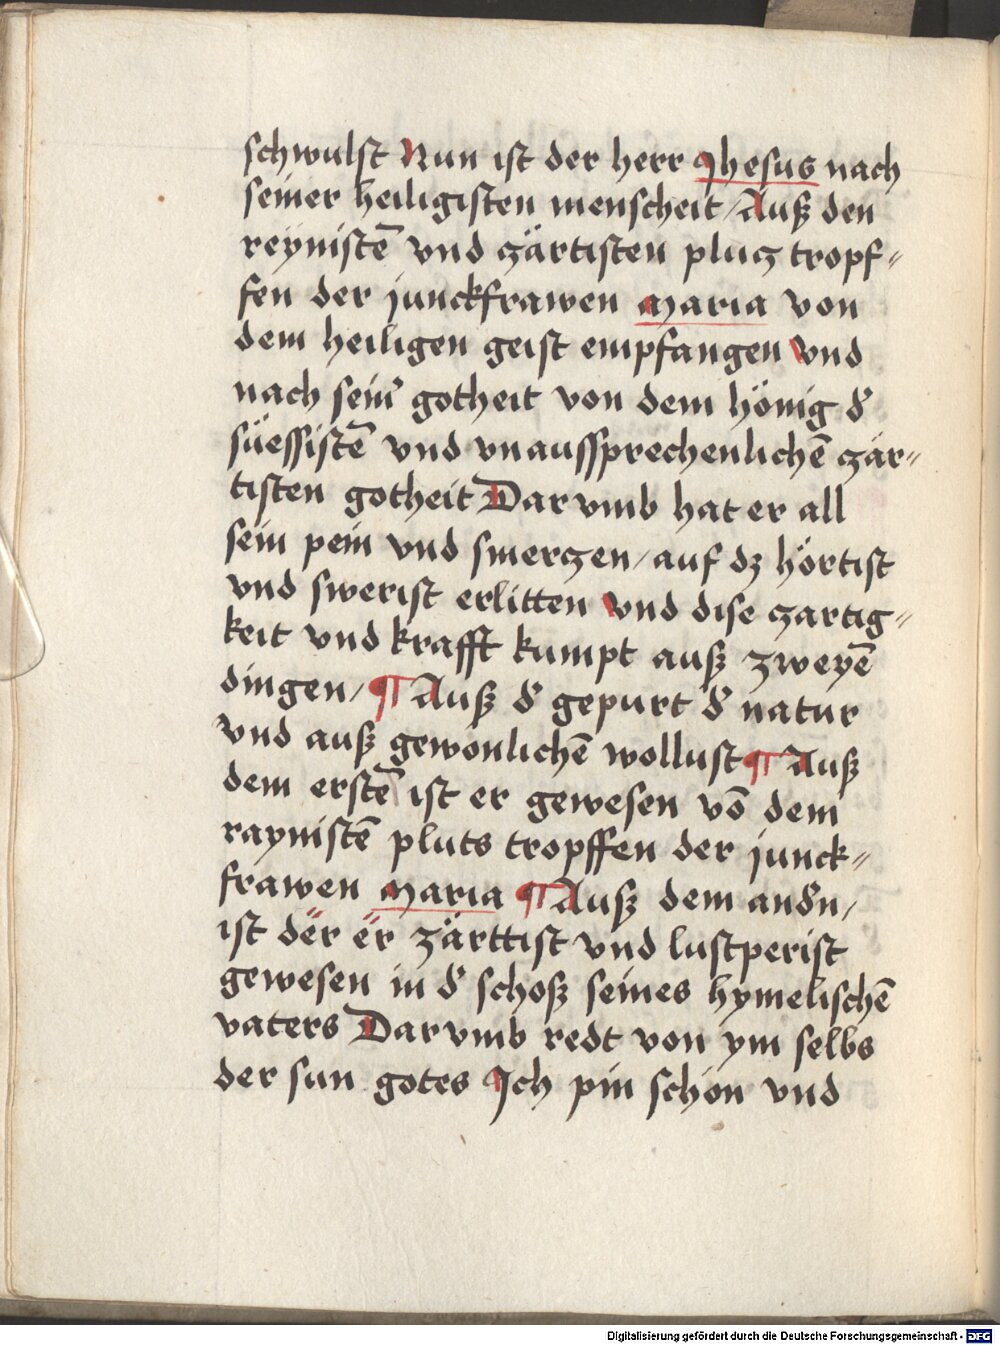 schwulst Nun ist der herr Jhesus nach
seiner heiligisten menscheit / Auß den
reÿnistē vnd zärtisten plutz tropf⸗
fen der junckfrawen Maria von
dem heiligen geist empfangen Vnd
nach sein᷑ gotheit von dem hönig d᷑
süessistē vnd vnaussprechenlichē zär⸗
tisten gotheit Dar vmb hat er all
sein pein vnd smerczen / auf dz hörtist
vnd swerist erlitten Vnd dise zartig⸗
keit vnd krafft kumpt auß zweyē
dingen / ¶ Auß d᷑ gepurt d᷑ natur
vnd auß gewonlichē wollust ¶ Auß
dem erstē ist er gewesen vō dem
raynistē pluts tropffen der junck⸗
frawen Maria ¶ Auß dem and᷑n /
ist der er zärttist vnd lustperist
gewesen in d᷑ schoß seines hymelischē
vaters Dar vmb redt von ym selbs
der sun gotes Ich pin schon vnd
Digitalisierung gefördert durch die Deutsche Forschungsgemeinschaft - DFG